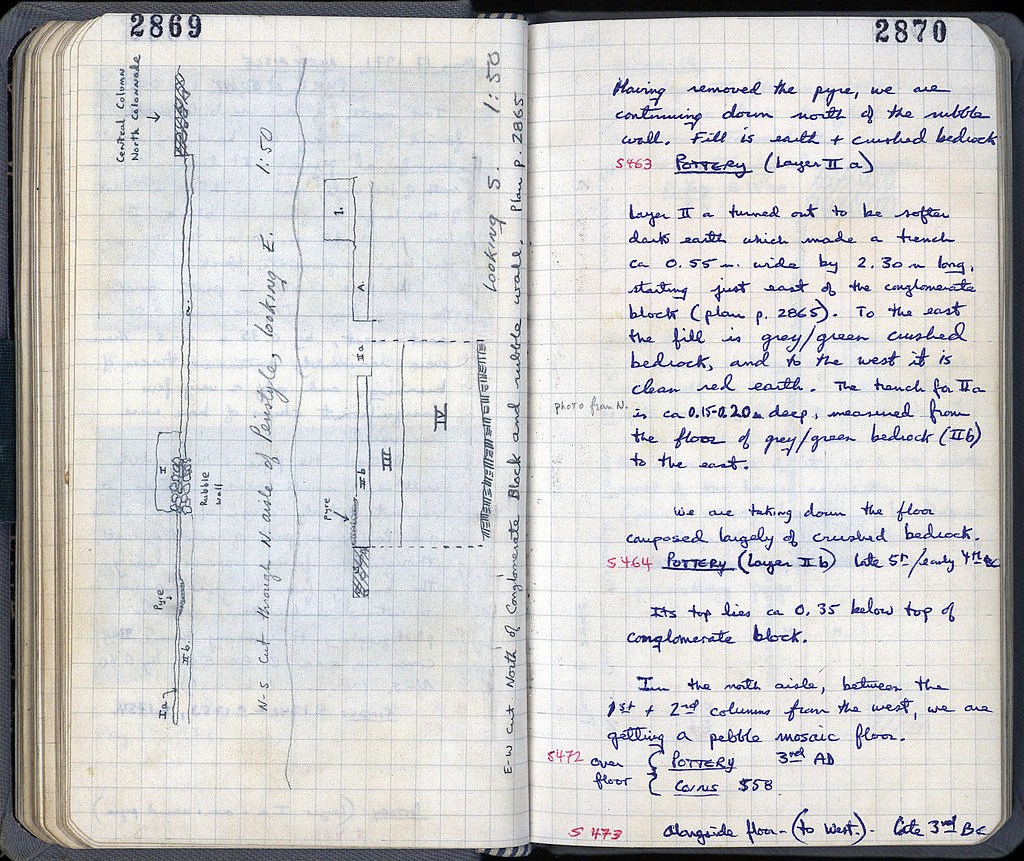 2869
Central Column
North Colonnade
I
Rubble
wall
Pyre
II b
Ia
N-S cut through N. aisle of Peristyle, looking E. 1:50
1.
A.
IIa
II b
Pyre
III
IV
looking S. 1:50
E-W cut North of Conglomerate Block and rubble wall, Plan p. 2865
2870
Having removed the pyre, we are
continuing down north of the rubble
wall. Fill is earth + crushed bedrock
S463 POTTERY (Layer II a)
Layer II a turned out to be softer
dark earth which made a trench
ca 0.55 m. wide by 2.30 m long,
starting just east of the conglomerate
block (plan p. 2865). To the east
the fill is grey/green crushed
bedrock, and to the west it is
clean red earth. The trench for IIa
photo from N.
is ca 0.15-0.20m deep, measured from
the floor of grey/green bedrock (IIb)
to the east.
We are taking down the floor
composed largely of crushed bedrock.
S464 POTTERY (Layer II b) late 5th/early 4th BC
Its top lies ca 0.35 below top of
conglomerate block.
In the north aisle, between the
1st + 2nd columns from the west, we are
getting a pebble mosaic floor.
S472 over floor { POTTERY 3rd AD
{ Coins $58
S 473 alongside floor - (to West.) - late 3rd BC